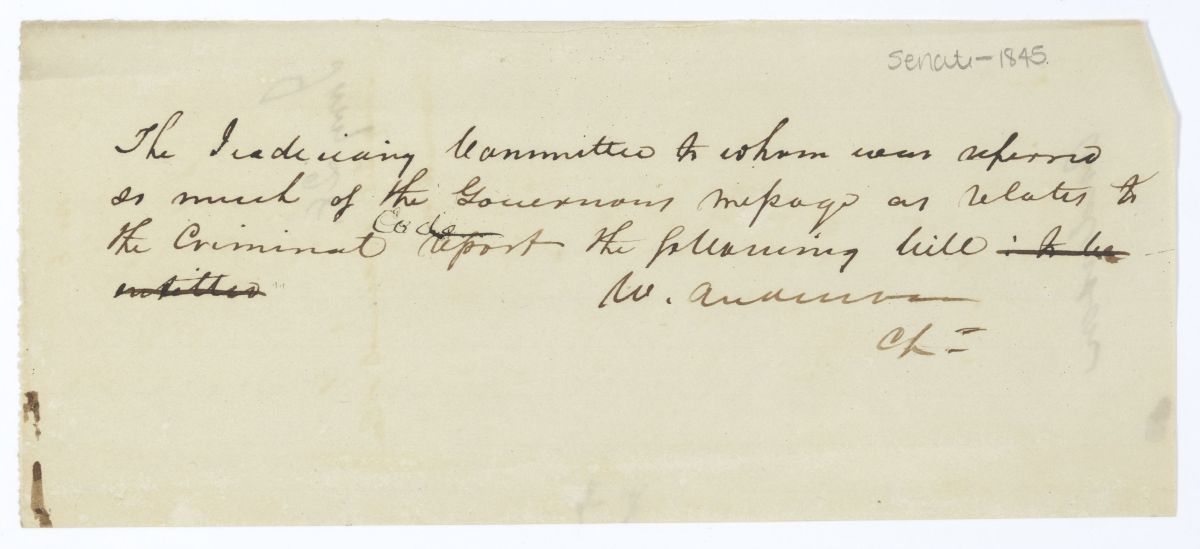 Senate - 1845.
The Judiciary Committee to whom was referred
so much of the Governours message as relates to
the Criminal Code report the following bill : to be
entitled
W. Anderson
Ch=